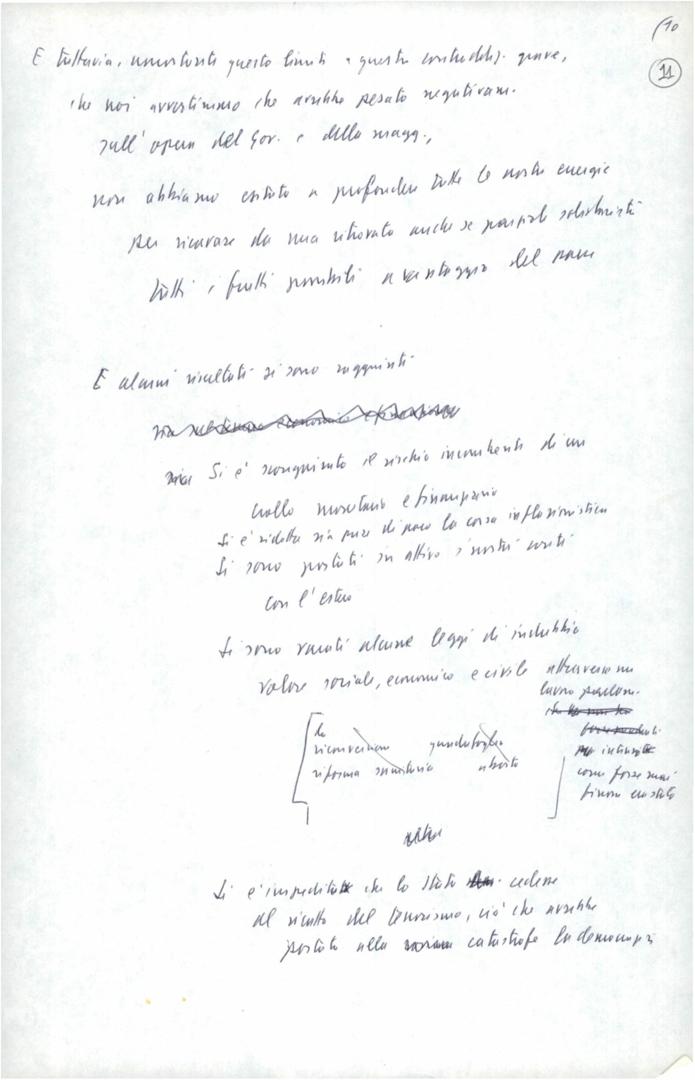 10
11
E tuttavia, nonostante questo limite e questa contraddiz. grave,
che noi avvertimmo che avrebbe pesato negativam.
sull'opera del Gov. e della magg.,
non abbiamo esitato a profondere tutte le nostre energie
per ricavare da una ritrovata anche se parziale solidarietà
tutti i frutti possibili a vantaggio del paese
E alcuni risultati si sono raggiunti
sia
Si è scongiurato il rischio incombente di un
crollo monetario e finanziario
Si è ridotta sia pure di poco la corsa inflazionistica
Si sono portati in attivo i nostri conti
con l'estero
Si sono varati alcune leggi di indubbio
valore sociale, economico e civile attraverso un
lavoro parlam.
intensità
come forse mai
finora era stato
riconversione quadrifoglio
riforma sanitaria aborto
altre
Si è impedito che lo Stato cedesse
al ricatto del terrorismo, ciò che avrebbe
portato alla catastrofe la democrazia